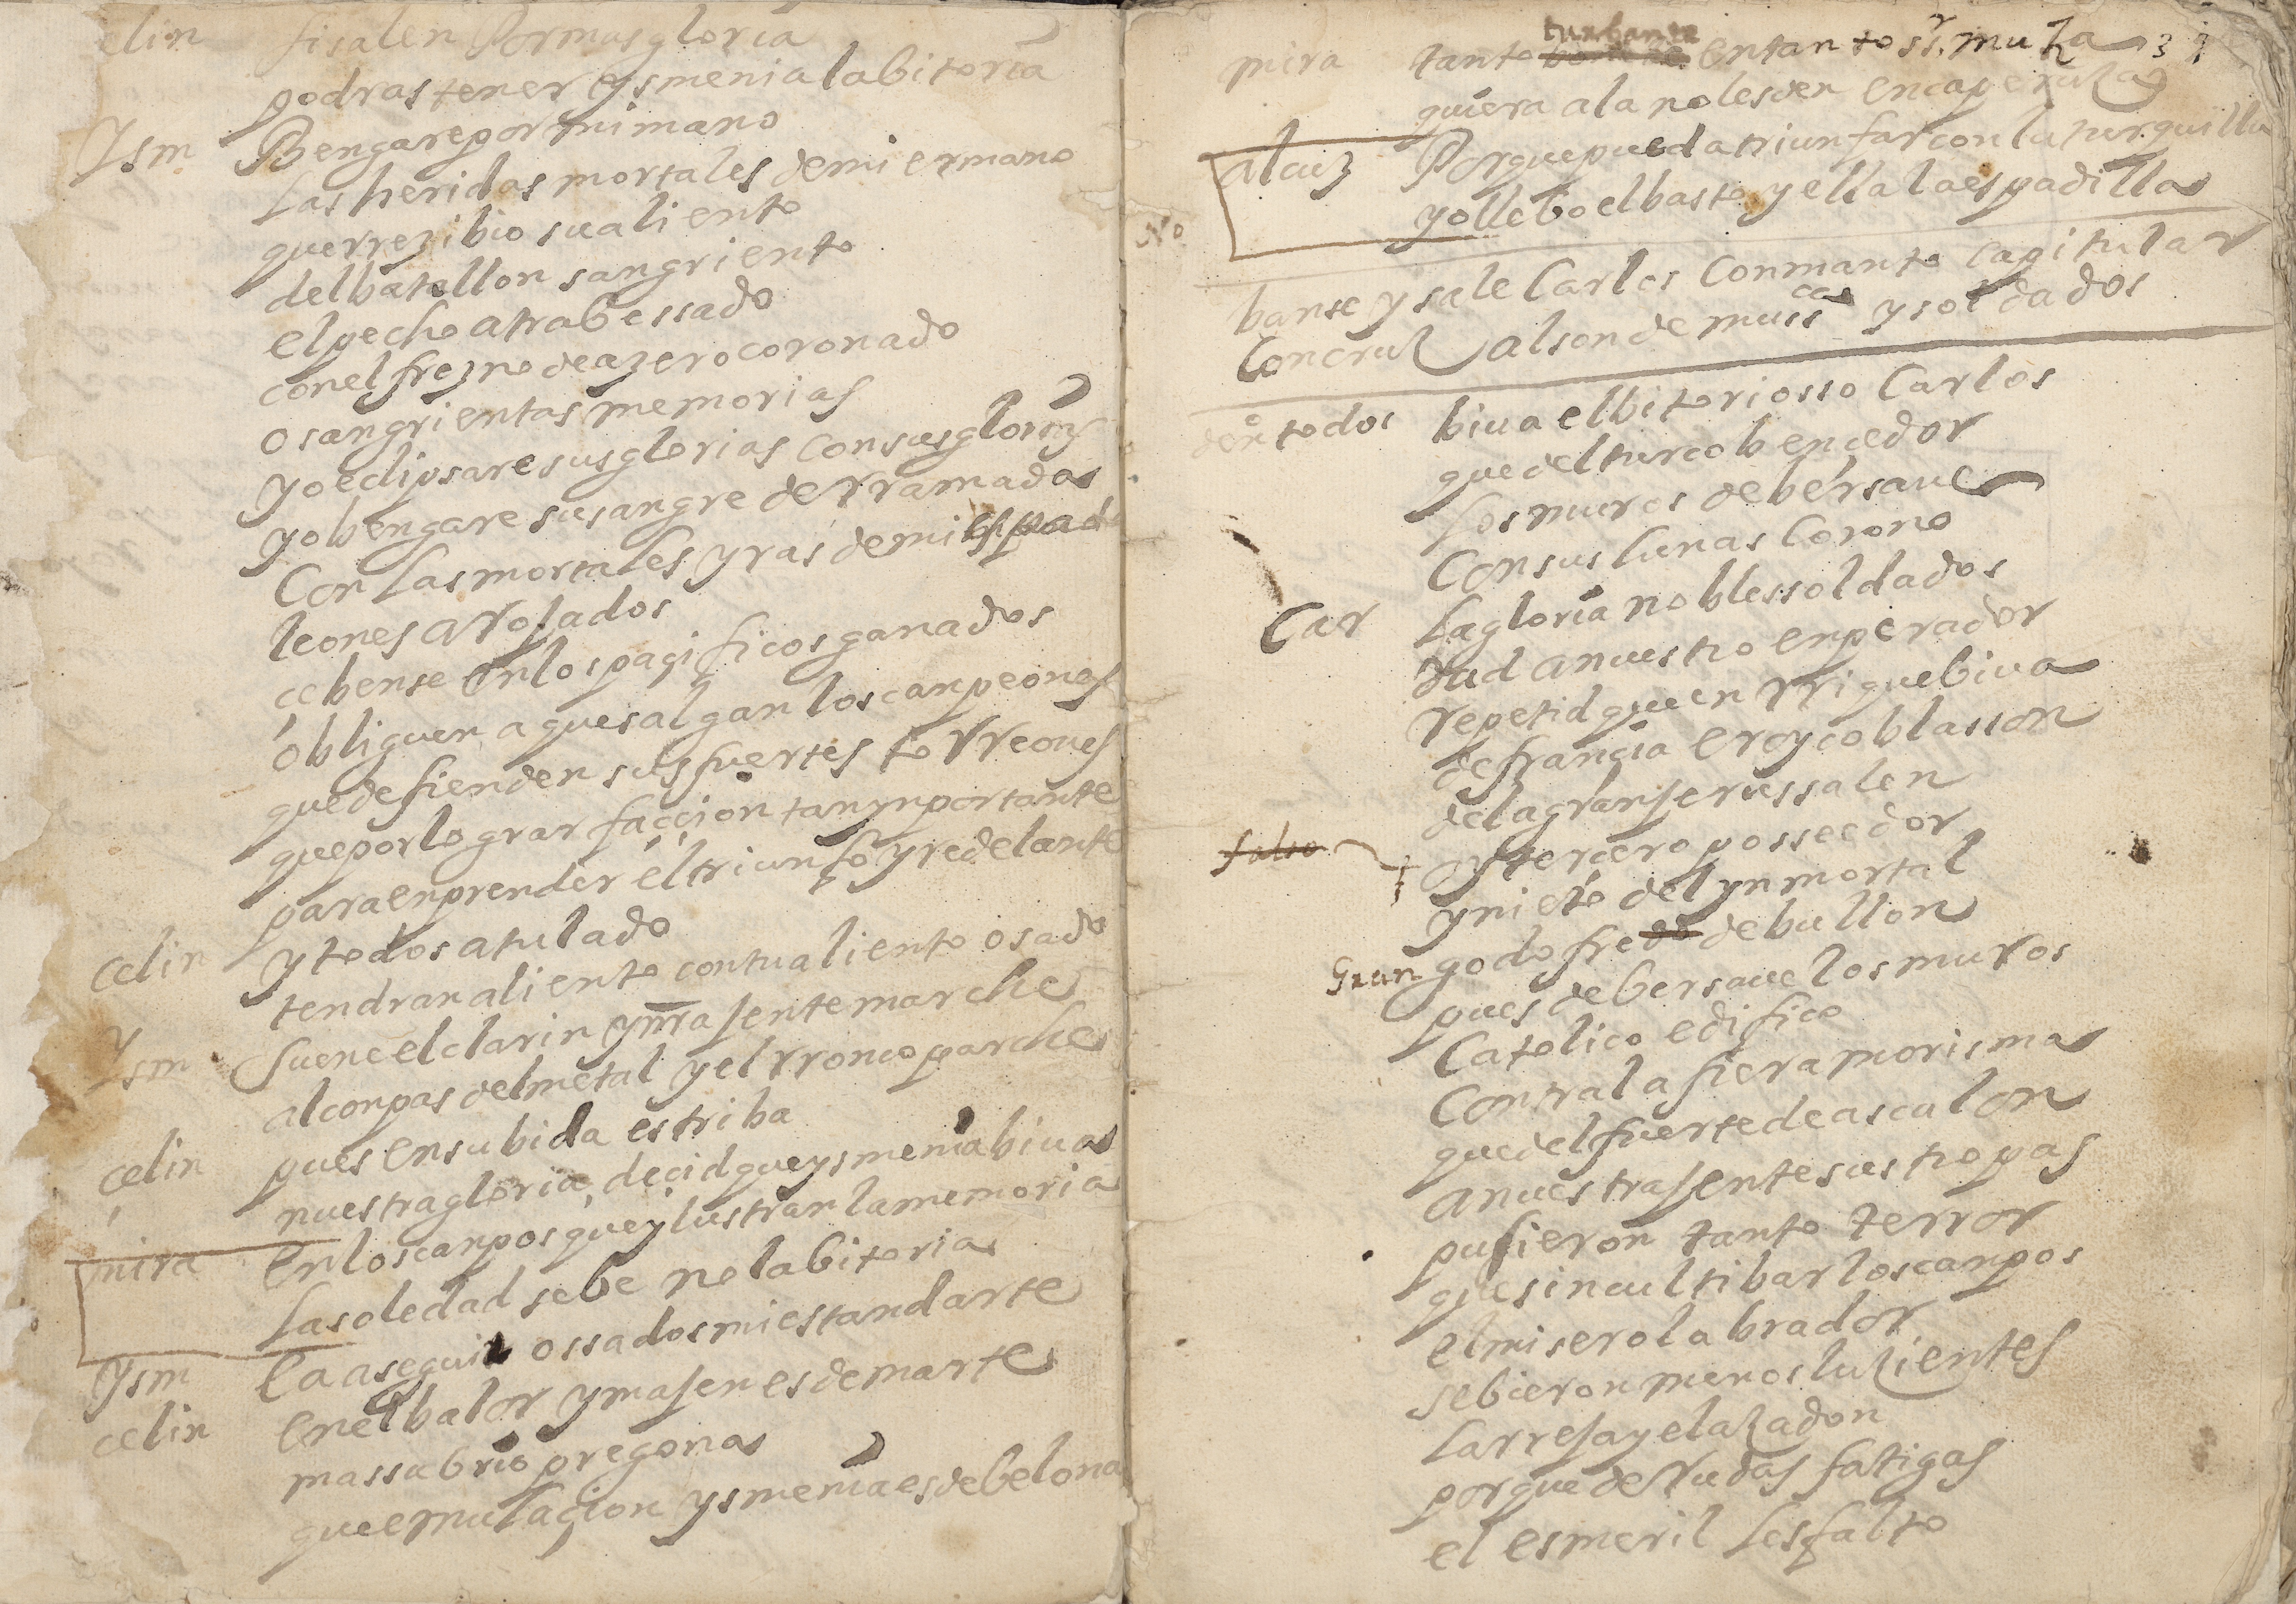 elin si salen Por mas gloria
podras tener ysmenia la bitoria
Ysm Bengare por mi mano
Las heridas mortales de mi ermano
que rrezibio su aliento
del batallon sangriento
el pecho atrabessado
con el frezno de azero coronado
o sangrientas memorias
yo eclipsare sus glorias con sus glorias
yo bengare su sangre derramada
Con las mortales yras de mi espad
leones arojados
cebense en los pacificos ganados
obliguen a que salgan los canpeones
que defienden sus fuertes torreones
que por lograr faccion tan ynportante
para enprender el triunfo yre delante
celin y todos a tu lado
tendran aliento con tu aliento osado
Ysm Suene el clarin y mra jente marche
al conpas del metal y el rronco parche
pues en su bida estriba
celin nuestra gloria, decid que ysmenia biua
mira en los canpos que ylustran la memoria
La soledad se be no la bitoria
ysm Ea a seguir ossados mi estandarte
celin en el balor y majen es de marte
mas su brio pregona
que emulacion ysmenia es de belona
turbante
mira tanto entanto sr. muza 31
quiera ala no les den en caperuza
alcuz Porque pueda triunfar con la turquilla
yo llebo el basto y ella la espadilla
No
banse y sale Carlos Con manto capitular
Con cruz al son de mussca y soldados
denº todos biua el bitoriosso Carlos
que del turco bencedor
Los muros de bersaue
Con sus lunas Corono
Car La gloria nobles soldados
dad a nuestro enperador
repetid que enrrique biua
de francia eroyco blasson
de la gran jerussalen
falso oy tercero posseedor
y nieto del ynmortal
Gran godofre de bullon
pues de bersaue los muros
Catolico edifico
Contra la fiera morisma
que del fuerte de ascalon
a nuestra jente sus tropas
pusieron tanto terror
que sin cultibar los canpos
el misero labrador
se bieron menos luzientes
La rreja y el azadon
porque de rudas fatigas
el esmeril les falto